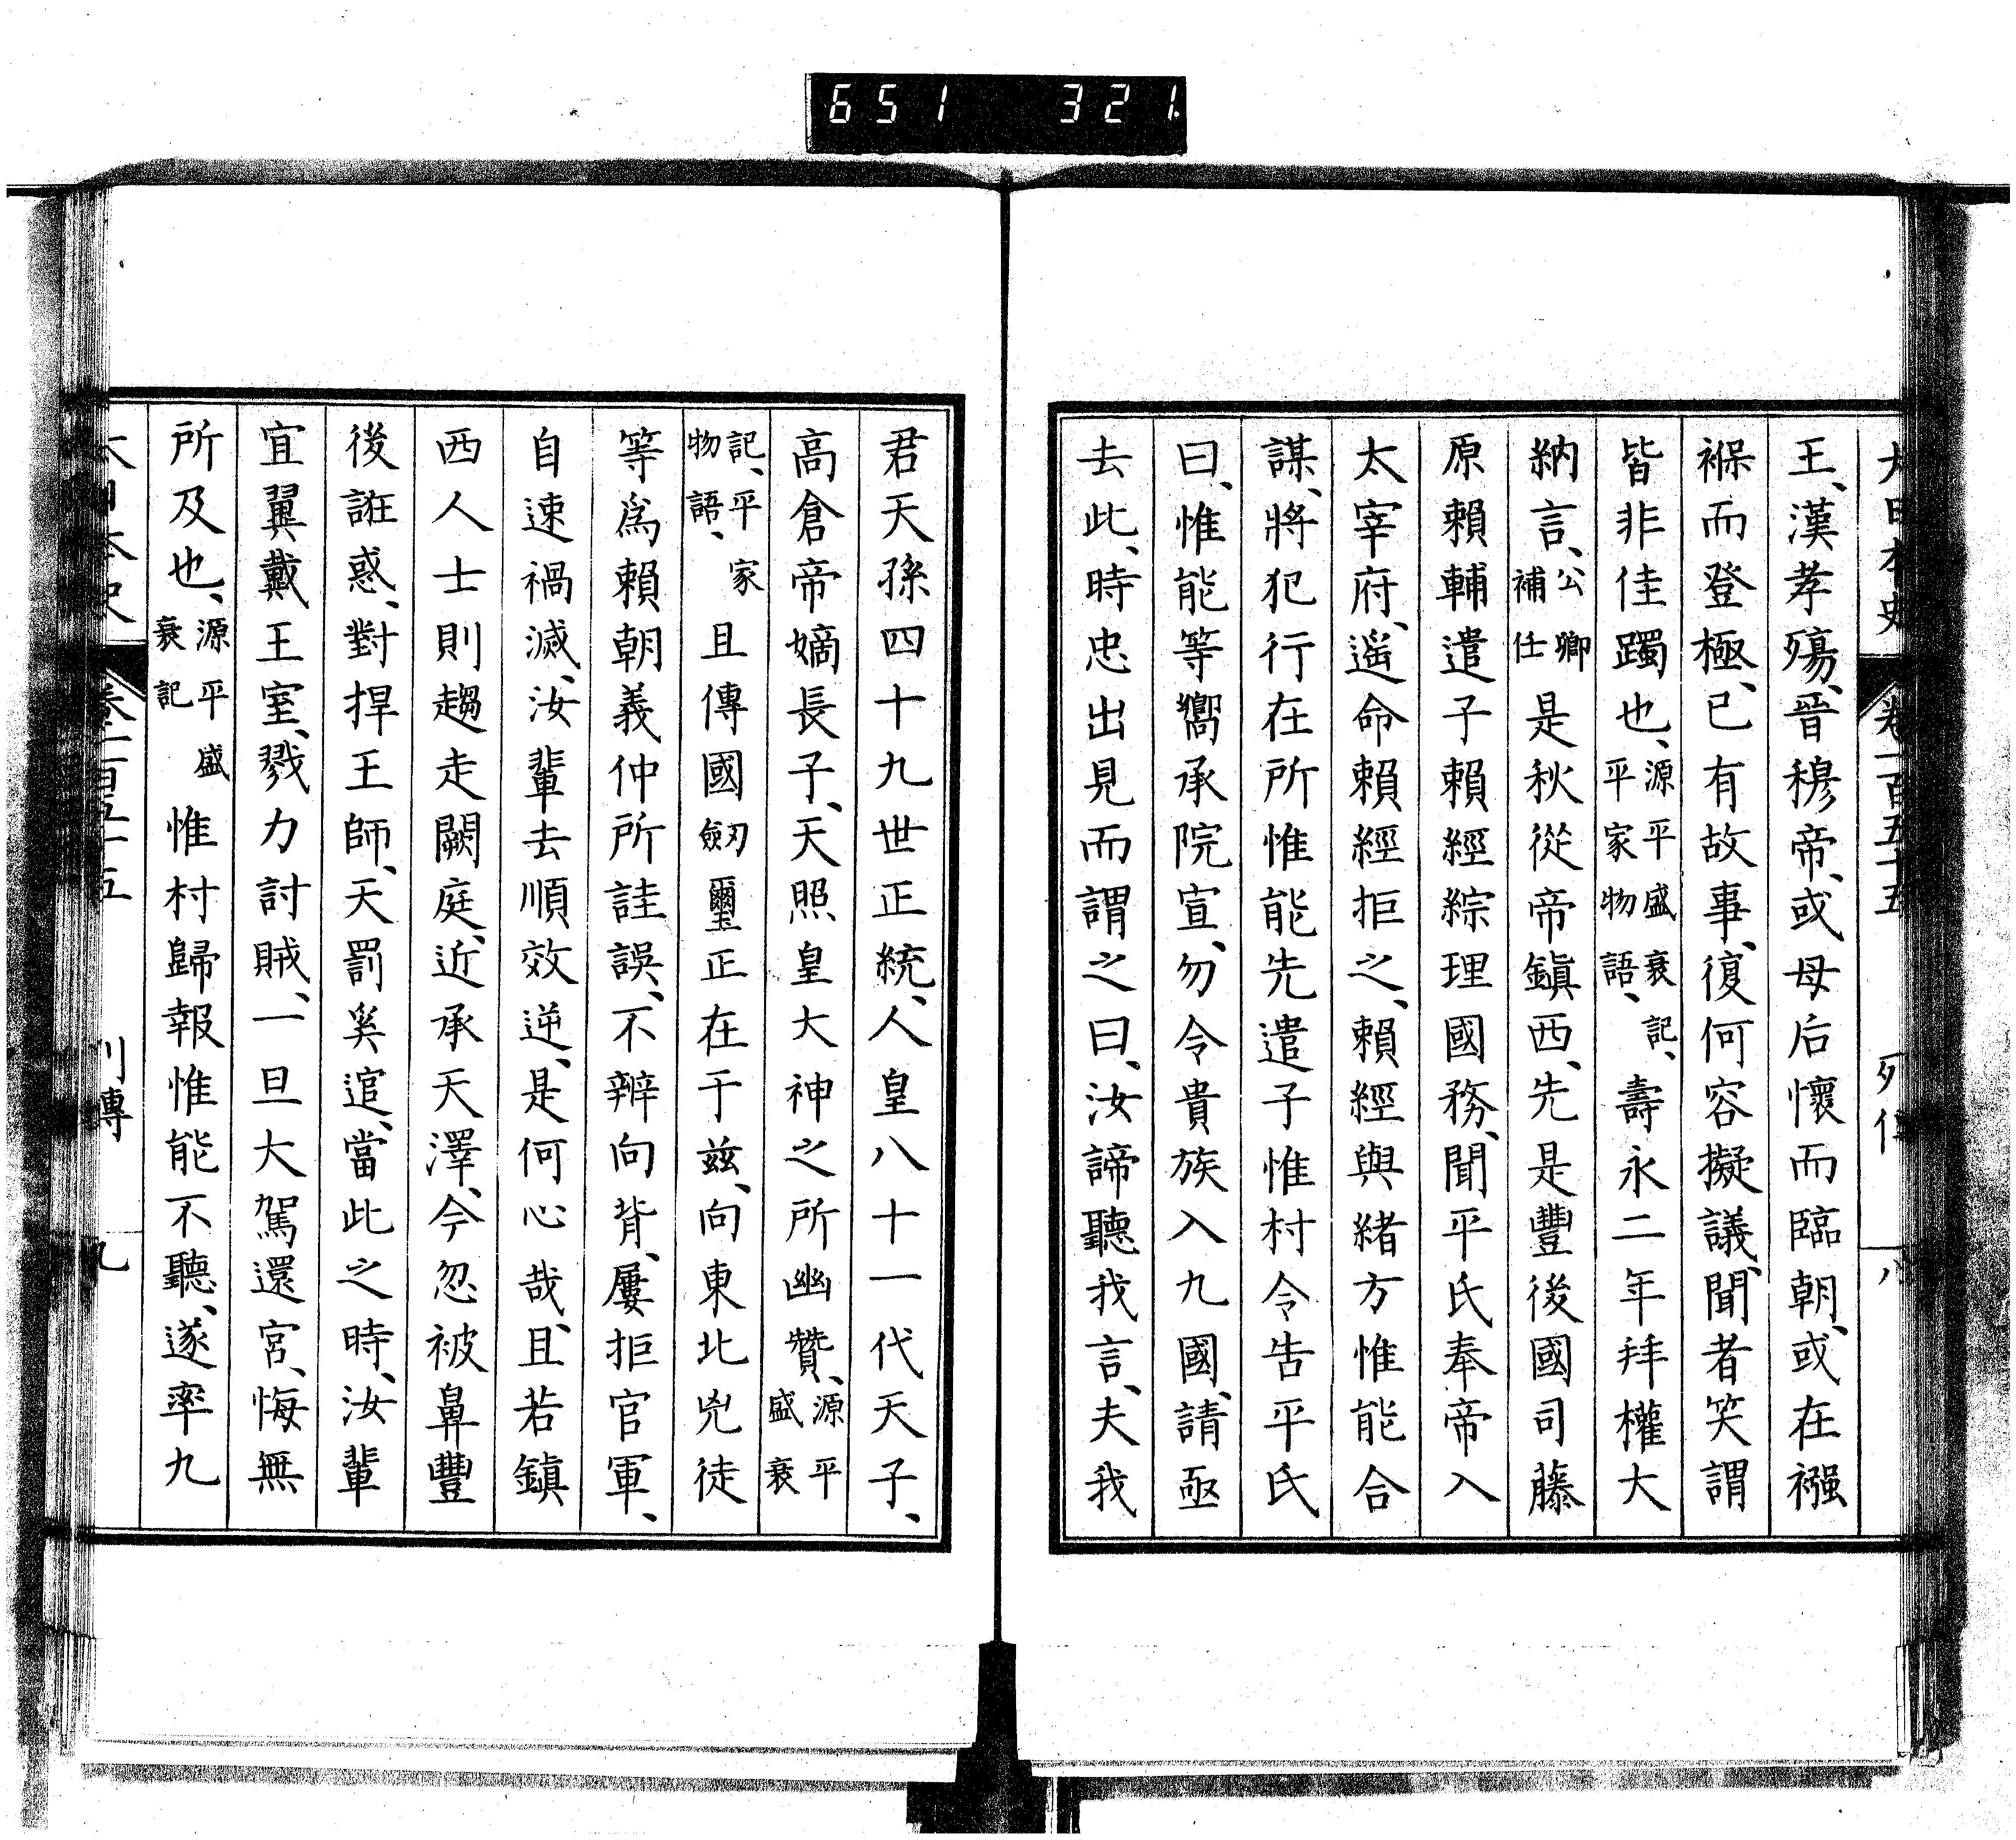 651 321.
大日本史 卷一百五十五 列傳 八
王、漢孝殤、晉穆帝、或母后懷而臨朝、或在襁
褓而登極、已有故事、復何容擬議、聞者笑謂
皆非佳躅也、源平盛衰記、平家物語、壽永二年拜權大
納言、公卿補任是秋從帝鎭西、先是豐後國司藤
原賴輔遣子賴經綜理國務、聞平氏奉帝入
太宰府、遥命賴經拒之、賴經與緒方惟能合
謀、將犯行在所惟能先遣子惟村令告平氏
曰、惟能等嚮承院宣、勿令貴族入九國、請亟
去此、時忠出見而謂之曰、汝諦聽我言、夫我
君天孫四十九世正統、人皇八十一代天子、
高倉帝嫡長子、天照皇大神之所幽贊、源平盛衰
記、平家物語、且傳國劒璽正在于兹、向東北兇徒
等爲賴朝義仲所詿誤、不辨向背、屢拒官軍、
自速禍滅、汝輩去順效逆、是何心哉、且若鎭
西人士則趨走闕庭、近承天澤、今忽被鼻豐
後誑惑、對捍王師、天罰奚逭、當此之時、汝輩
宜翼戴王室、戮力討賊、一旦大駕還宮、悔無
所及也、源平盛衰記惟村歸報惟能不聽、遂率九
大日本史 卷一百五十五 列傳 九